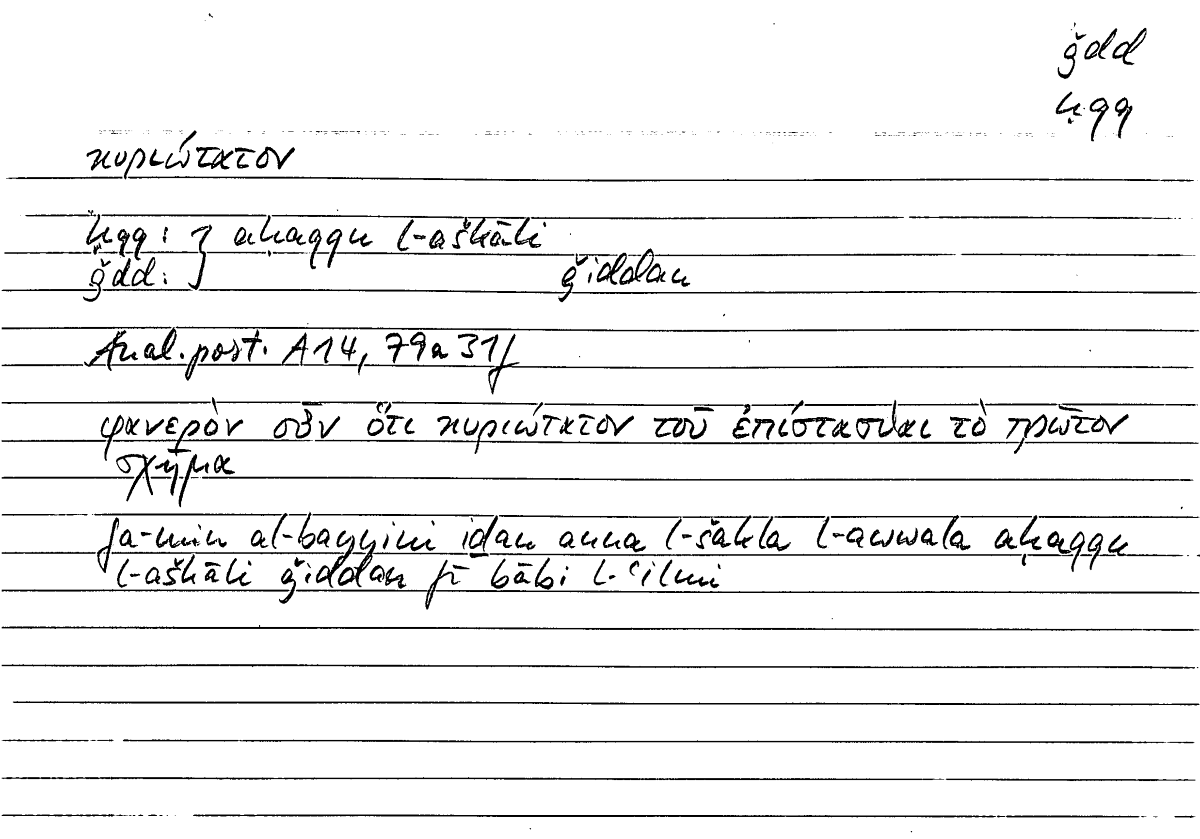 ǧdd
ḥqq
κυριώτατον
ḥqq: } aḥaqqu l-aškāli
ǧdd: } ǧiddan
Anal. post. A14, 79a31f
φανερὸν οὖν ὅτι κυριώτατον τοῦ ἐπίστασθαι τὸ πρῶτον
σχῆμα
fa-min al-bayyini iḏan anna l-šakla l-awwala aḥaqqu
l-aškāli ǧiddan fī bābi l-ʿilmi